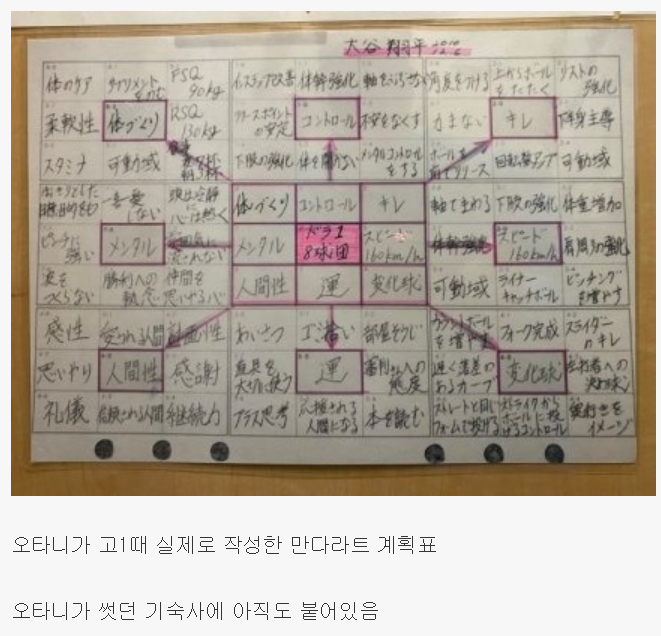 大谷 翔平
体のケア サプリメントをのむ FSQ 90kg インステップ改善 体幹強化 軸をぶらさない 角度をつける 上からボールをたたく リストの強化
柔軟性 体づくり RSQ 130kg リリースポイントの安定 コントロール 不安をなくす 力まない キレ 下半身主導
スタミナ 可動域 下肢の強化 体を開かない メンタルコントロールをする ボールを前でリリース 回転数アップ 可動域
はっきりとした目標、目的をもつ 一喜一憂しない 頭は冷静に心は熱く 体づくり コントロール キレ 軸でまわる 下肢の強化 体重増加
ピンチに強い メンタル 雰囲気に流されない メンタル ドラ1 8球団 スピード 160km/h 体幹強化 スピード 160km/h 肩周りの強化
波をつくらない 勝利への執念 仲間を思いやる心 人間性 運 変化球 可動域 ライナーキャッチボール ピッチングを増やす
感性 愛される人間 計画性 あいさつ ゴミ拾い 部屋そうじ カウントボールを増やす フォーク完成 スライダーのキレ
思いやり 人間性 感謝 道具を大切に使う 運 審判さんへの態度 遅く落差のあるカーブ 変化球 左打者への決め球
礼儀 信頼される人間 継続力 プラス思考 応援される人間になる 本を読む ストレートと同じフォームで投げる ストライクからボールに投げるコントロール 奥行きをイメージ
오타니가 고1때 실제로 작성한 만다라트 계획표
오타니가 썻던 기숙사에 아직도 붙어있음